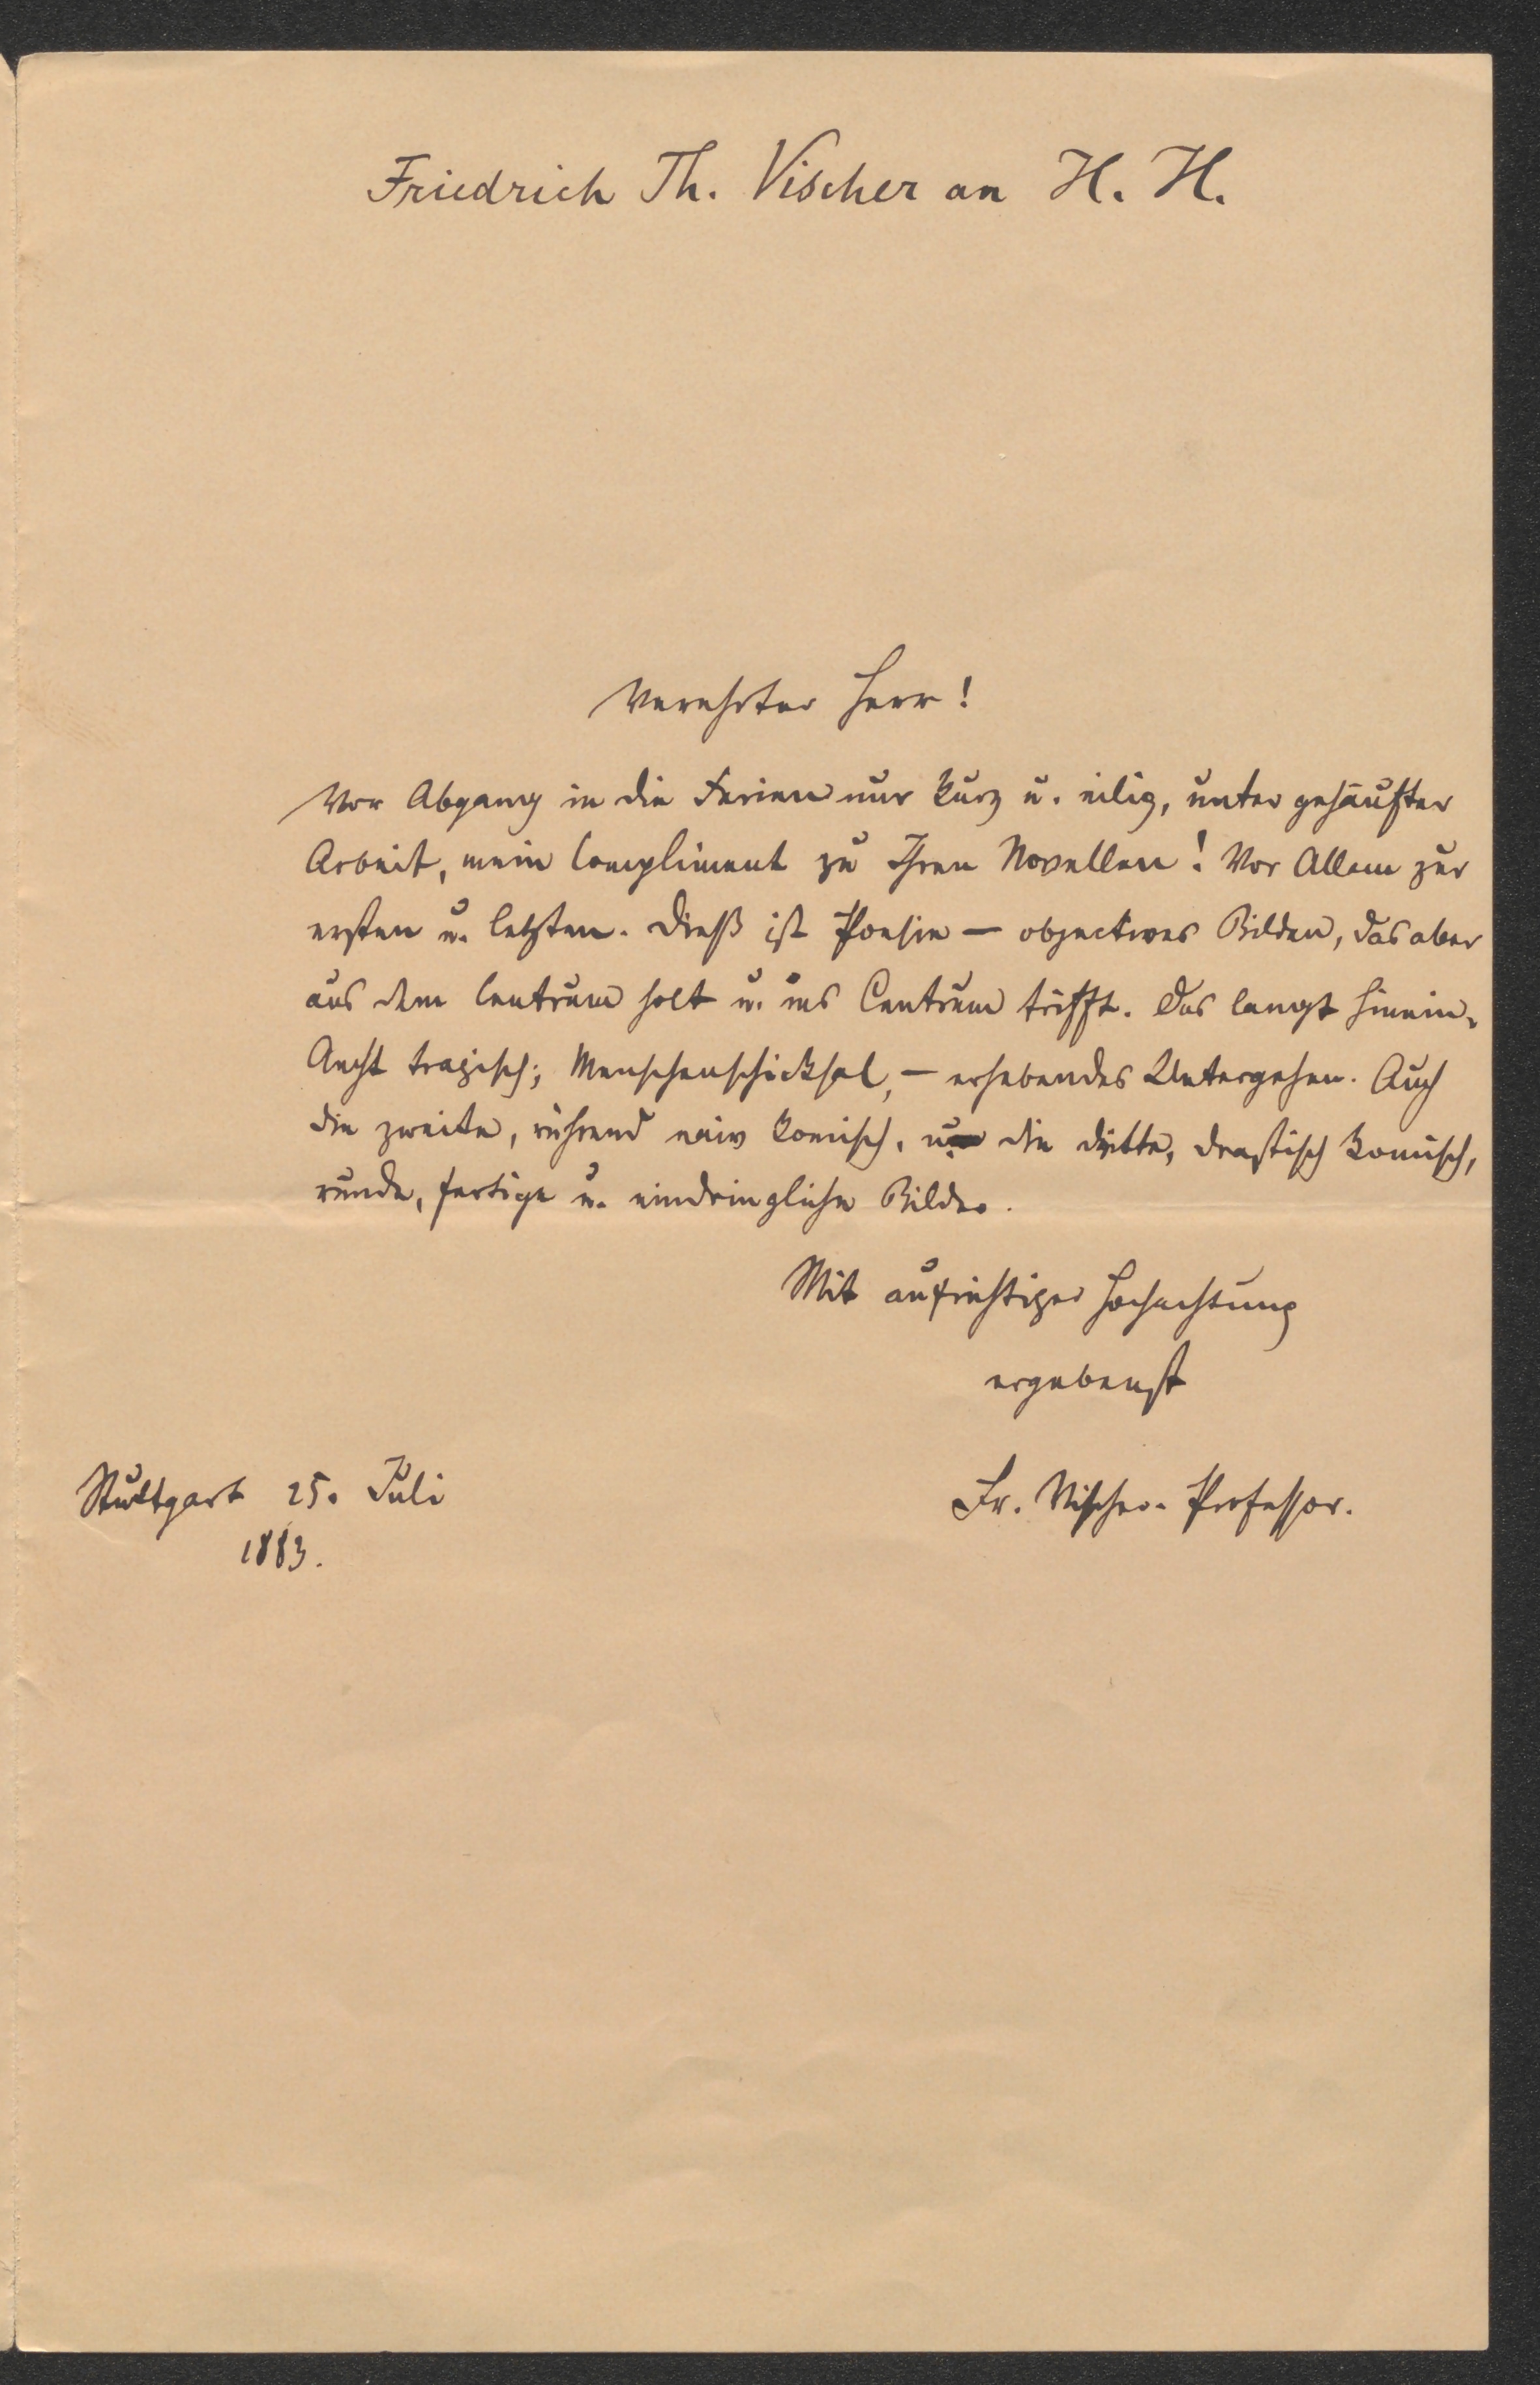 Friedrich Th. Vischer an H. H.
Verehrter Herr!
Vor Abgang in die Ferien nur kurz u. eilig, unter gehäufter
Arbeit, mein Compliment zu Ihren Novellen! Vor Allem zur
ersten u. letzten. Dieß ist Poesie – objectives Bilden, das aber
aus dem Centrum holt u. ins Centrum trifft. Das langt hinein.
Aecht tragisch; Menschenschicksal, – erhebendes Untergehen. Auch
die zweite, rührend naiv komisch, u. die dritte, drastisch komisch,
runde, fertige u. eindringliche Bilder.
Mit aufrichtiger Hochachtung
ergebenst
Stuttgart 25. Juli
1883.
Fr. Vischer. Professor.